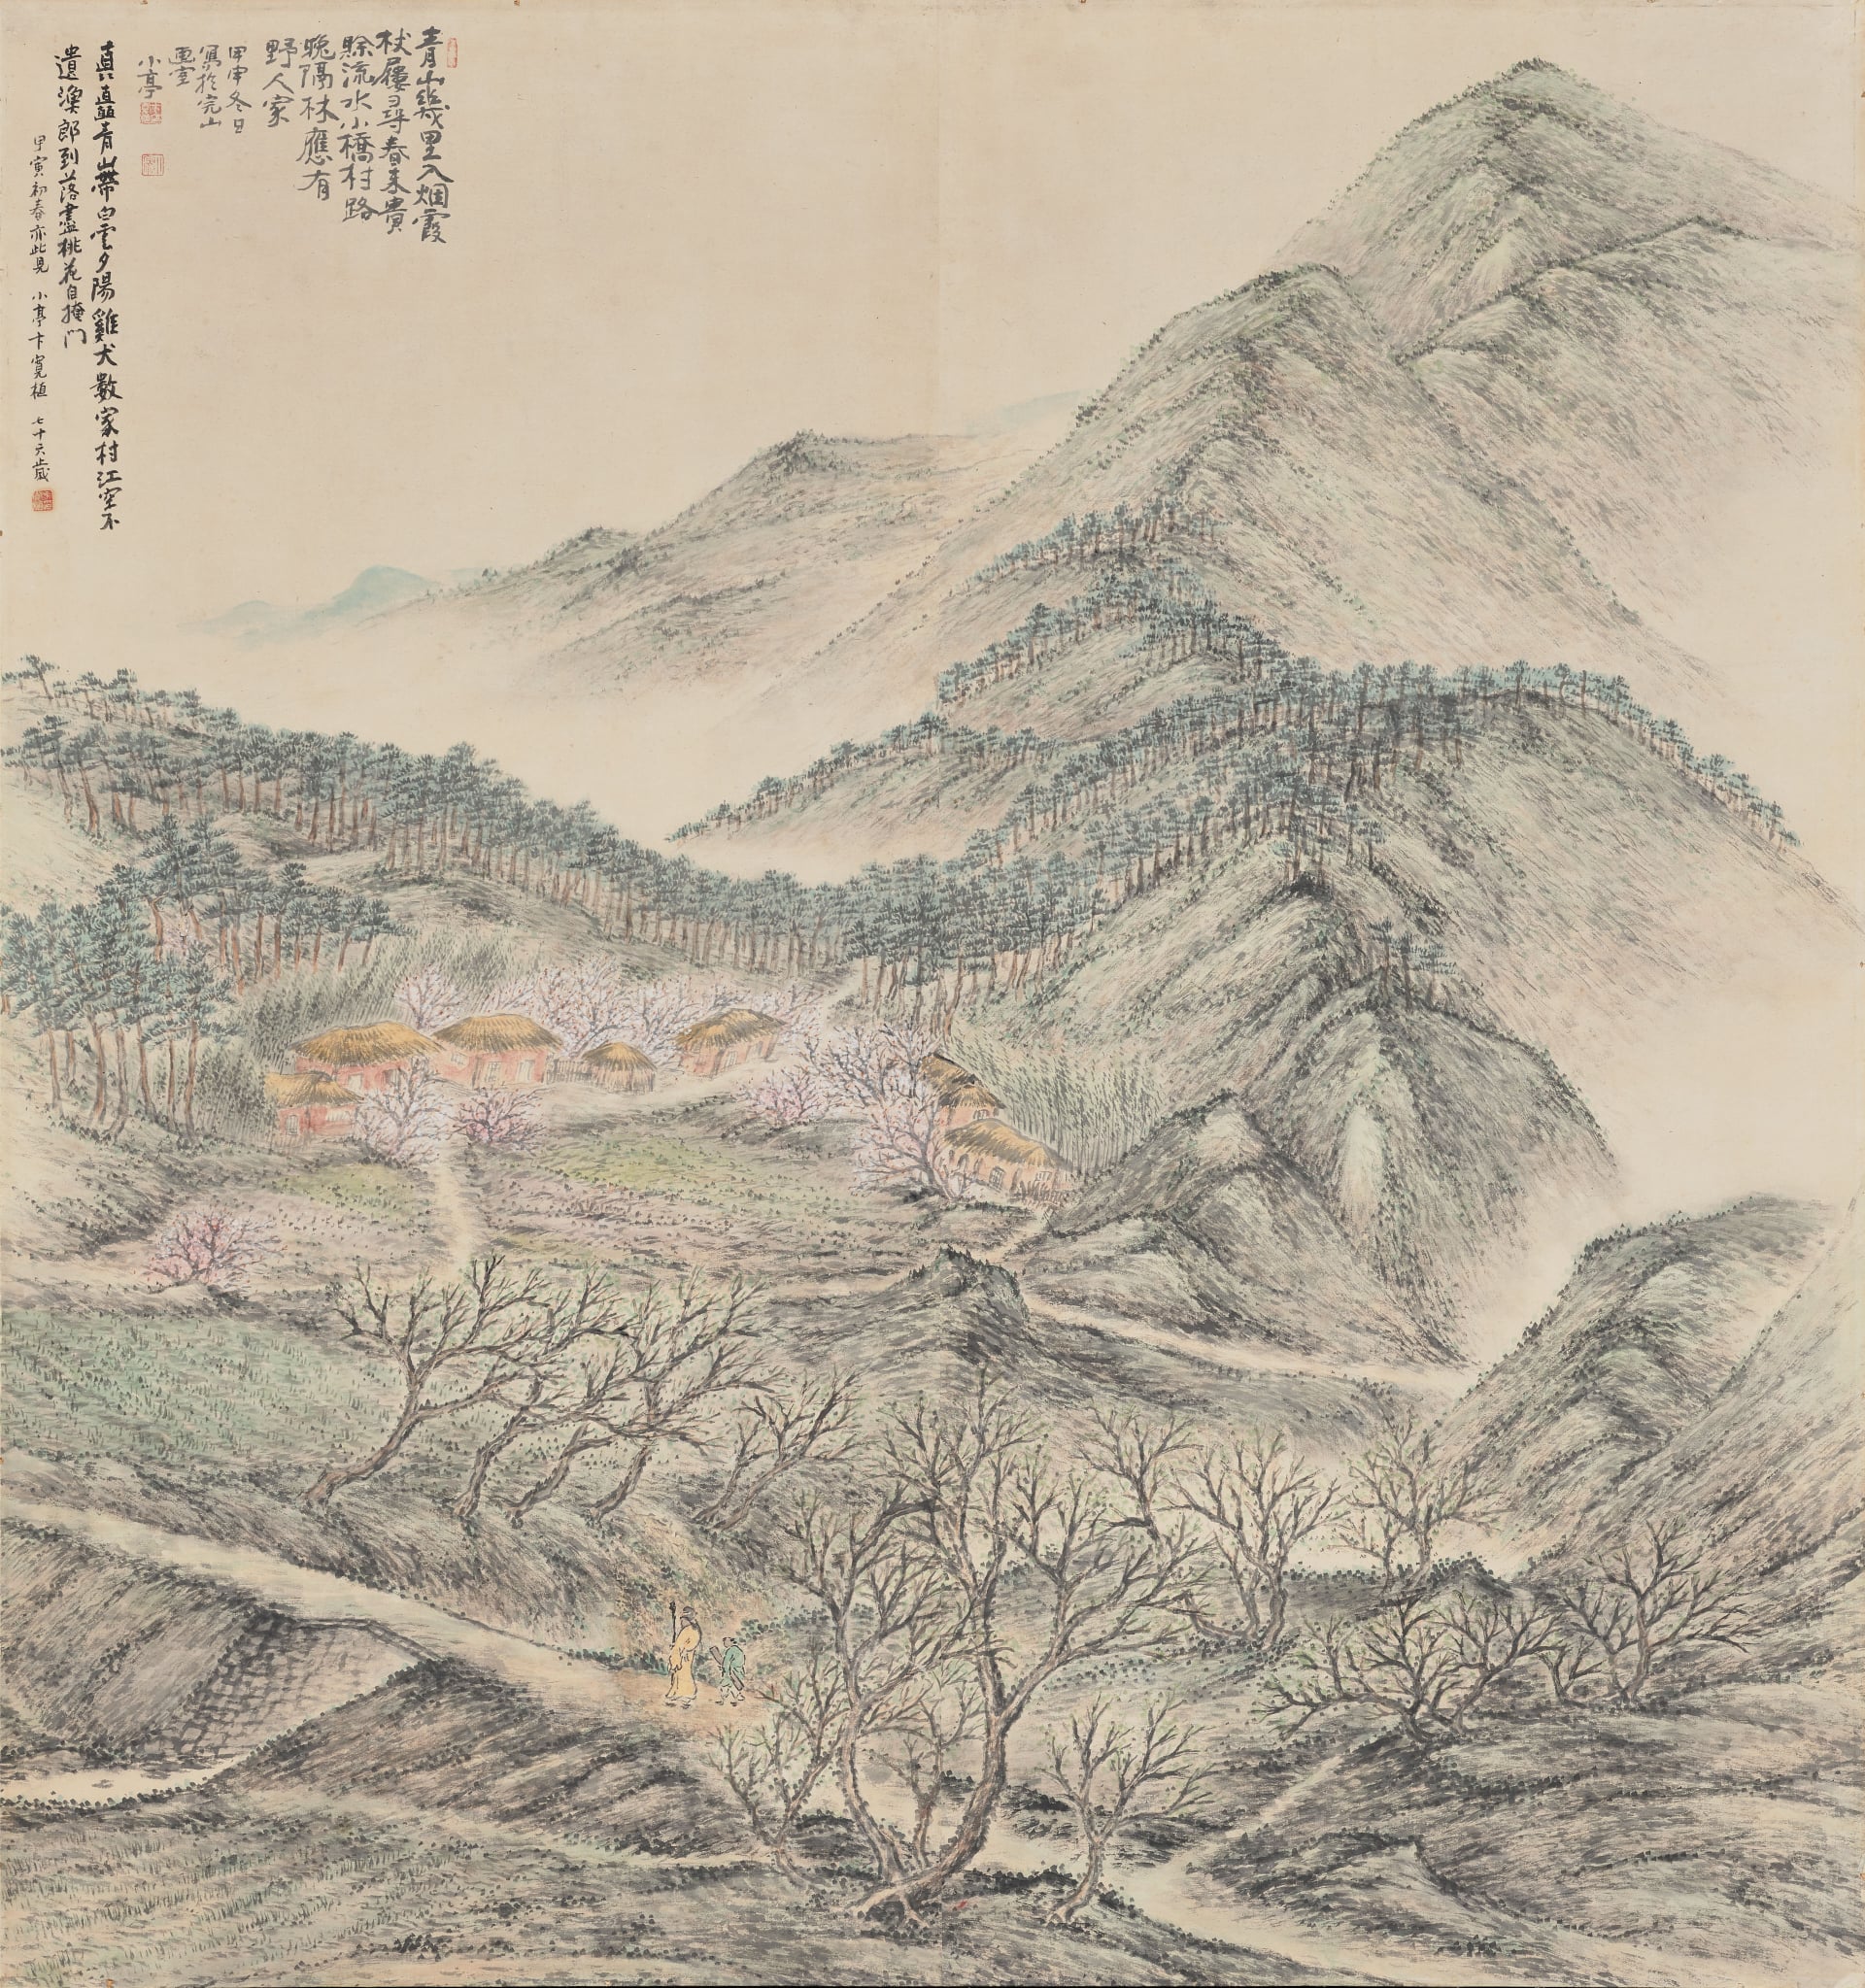 青山幾里入烟霞
杖屨尋春来貴
賖流水小橋村路
晚隔林應有
野人家
甲申冬日
寫於完山
畫室
小亭
直直青山帶白雲夕陽雞犬數家村江空不
遣漁郎到落盡桃花自掩门
甲寅初春亦此見 小亭卞寬植 七十六歲